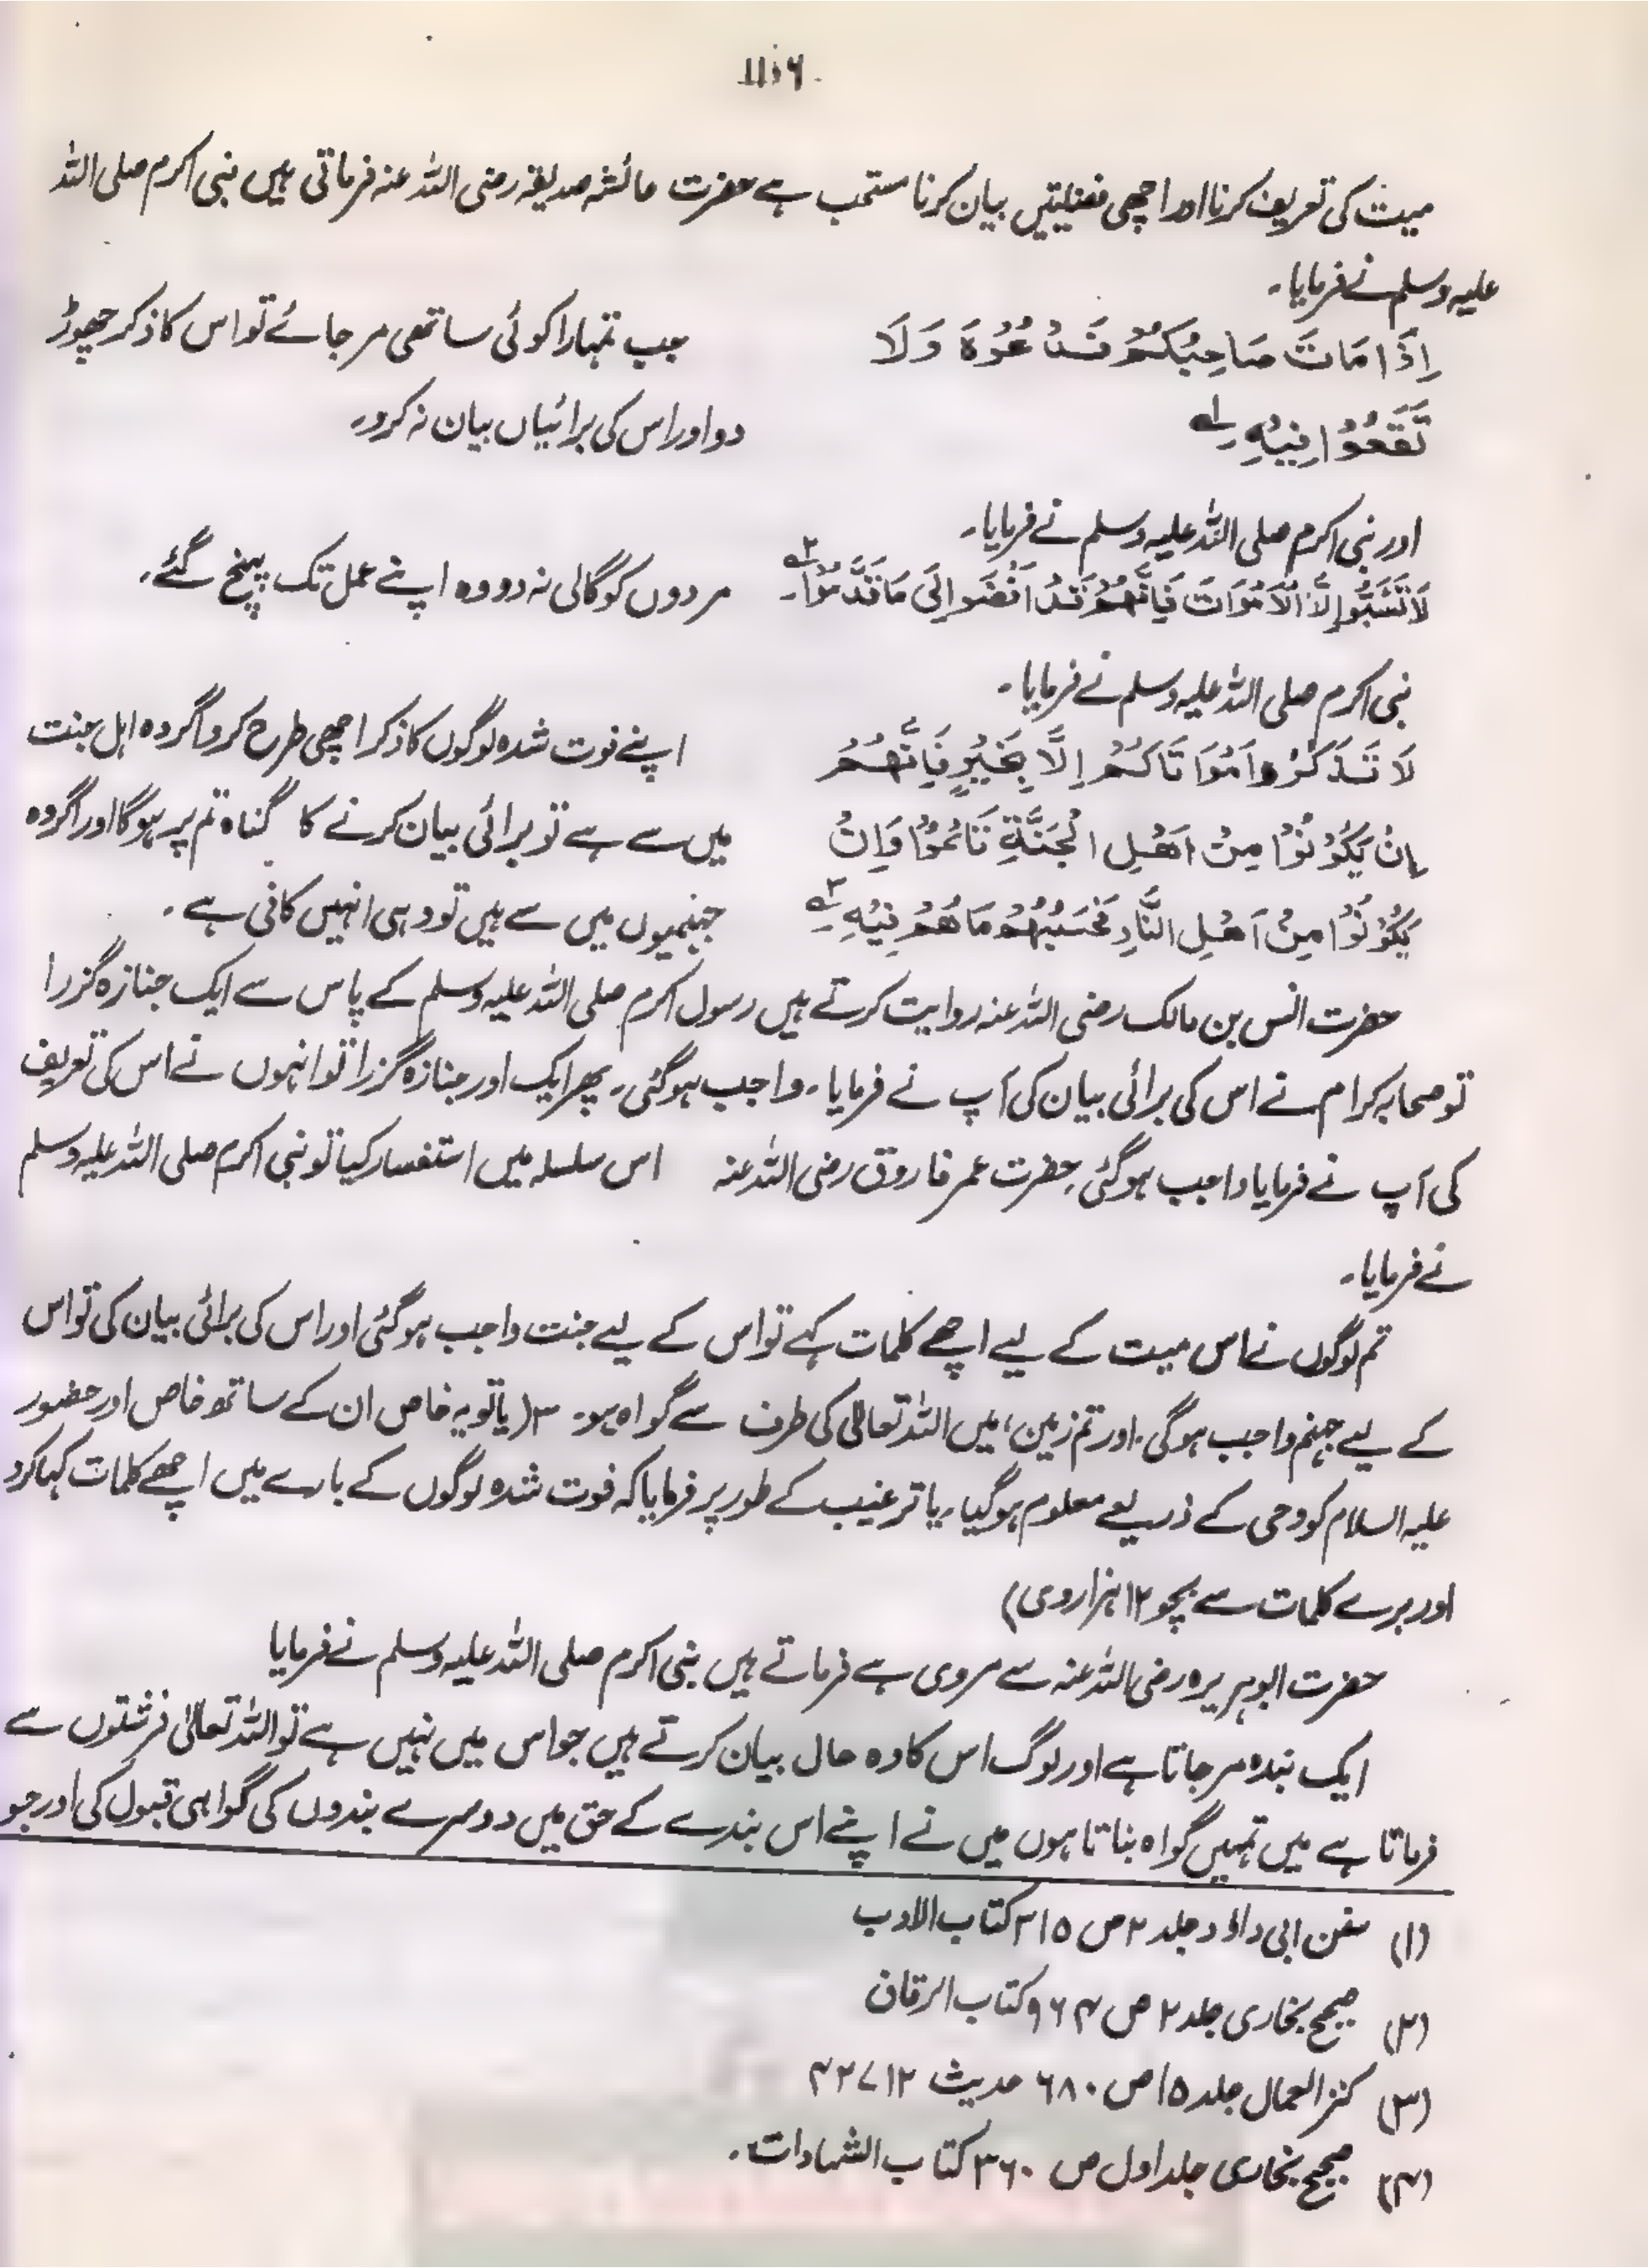 ۱۱۵۶
میت کی تعریف کرنا اور اچھی فضیلتیں بیان کرنا مستحب ہے حضرت عائشہ صدیقہ رضی اللہ عنہ فرماتی ہیں نبی اکرم صلی اللہ
علیہ وسلم نے فرمایا۔
اِذَا مَاتَ صَاحِبُکُمْ فَدَعُوْہُ وَلَا
جب تمہارا کوئی ساتھی مر جائے تو اس کا ذکر چھوڑ
تَقَعُوْا فِیْہِ ۱ے
دو اور اس کی برائیاں بیان نہ کرو۔
اور نبی اکرم صلی اللہ علیہ وسلم نے فرمایا۔
لَا تَسُبُّوا اِلَّا الْاَمْوَاتَ فَاِنَّھُمْ قَدْ اَفْضَوا اِلَی مَا قَدَّمُوْا۔ ۲ے
مردوں کو گالی نہ دو وہ اپنے عمل تک پہنچ گئے۔
نبی اکرم صلی اللہ علیہ وسلم نے فرمایا۔
لَا تَذَکَّرُوا مَوْتَاکُمْ اِلَّا بِخَیْرٍ فَاِنَّھُمْ
اپنے فوت شدہ لوگوں کا ذکر اچھی طرح کرو اگر وہ اہل جنت
اِنْ یَکُوْنُوْا مِنْ اَھْلِ الْجَنَّۃِ تَاْثَمُوْا وَاِنْ
میں سے ہے تو برائی بیان کرنے کا گناہ تم پر ہوگا اور اگر وہ
یَکُوْنُوْا مِنْ اَھْلِ النَّارِ فَحَسْبُھُمْ مَا ھُمْ فِیْہِ ۳ے
جہنمیوں میں سے ہیں تو وہی انہیں کافی ہے۔
حضرت انس بن مالک رضی اللہ عنہ روایت کرتے ہیں رسول اکرم صلی اللہ علیہ وسلم کے پاس سے ایک جنازہ گزرا
تو صحابہ کرام نے اس کی برائی بیان کی آپ نے فرمایا۔ واجب ہوگئی۔ پھر ایک اور جنازہ گزرا تو انہوں نے اس کی تعریف
کی آپ نے فرمایا واجب ہوگئی حضرت عمر فاروق رضی اللہ عنہ اس سلسلہ میں استفسار کیا تو نبی اکرم صلی اللہ علیہ وسلم
نے فرمایا۔
تم لوگوں نے اس میت کے لیے اچھے کلمات کہے تو اس کے لیے جنت واجب ہوگئی اور اس کی برائی بیان کی تو اس
کے لیے جہنم واجب ہوگی۔ اور تم زمین، میں اللہ تعالیٰ کی طرف سے گواہ ہو۔ ۳( یا تو یہ خاص ان کے ساتھ خاص اور حضور
علیہ السلام کو وحی کے ذریعے معلوم ہوگیا۔ یا ترغیب کے طور پر فرمایا کہ فوت شدہ لوگوں کے بارے میں اچھے کلمات کہا کرو
اور برے کلمات سے بچو ۱۲ ہزاروی)
حضرت ابوہریرہ رضی اللہ عنہ سے مروی ہے فرماتے ہیں نبی اکرم صلی اللہ علیہ وسلم نے فرمایا
ایک بندہ مر جاتا ہے اور لوگ اس کا وہ حال بیان کرتے ہیں جو اس میں نہیں ہے تو اللہ تعالیٰ فرشتوں سے
فرماتا ہے میں تمہیں گواہ بناتا ہوں میں نے اپنے اس بندے کے حق میں دوسرے بندوں کی گواہی قبول کی اور جو
(۱) سنن ابی داؤد جلد ۲ ص ۳۱۵ کتاب الادب
(۲) صحیح بخاری جلد ۲ ص ۹۶۴ کتاب الرقاق
(۳) کنز العمال جلد ۱۵ ص ۶۸۰ حدیث ۴۲۷۱۲
(۴) صحیح بخاری جلد اول ص ۳۶۰ کتاب الشہادات۔